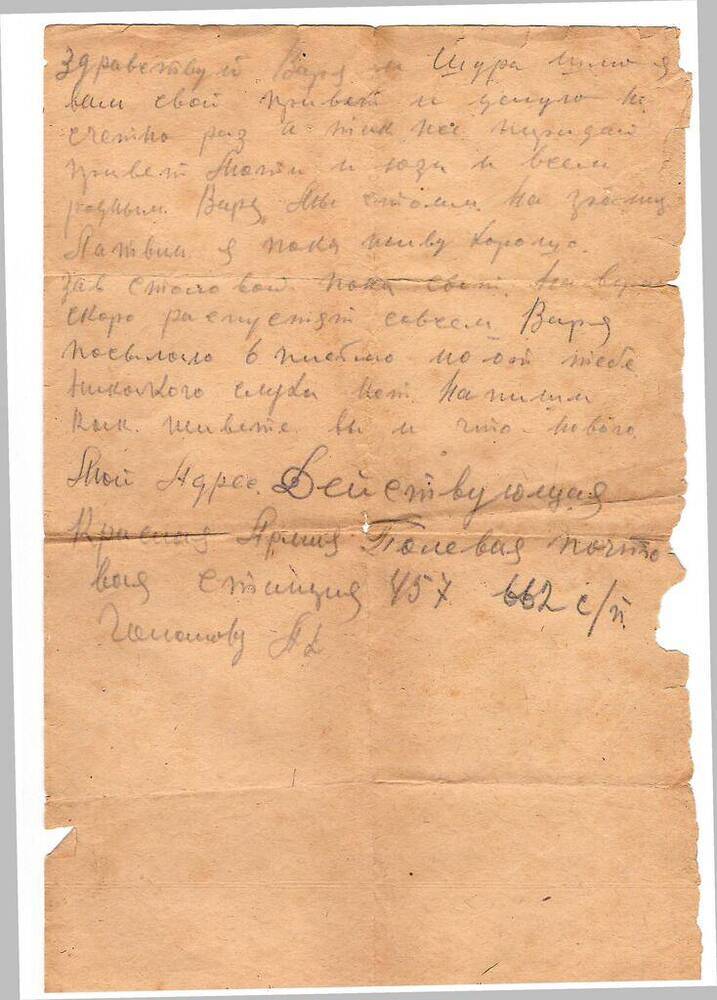 Здравствуй Варя и Шура шлю я
вам свой привет и целую не
счетно раз и так же передай
привет Моти и юзи и всем
родным. Варя Мы стоим на границ
Латвии я пока живу хорошо.
Зав столовой. пока свет. На верн
скоро распустят совсем Варя
посылаю 6 письмо но от тебе
никокого слуха нет. Напиши
как. живете вы и что нового.
Мой Адрес. Действующая
Красная Армия Полевая почто-
вая станция 457 662 с/п.